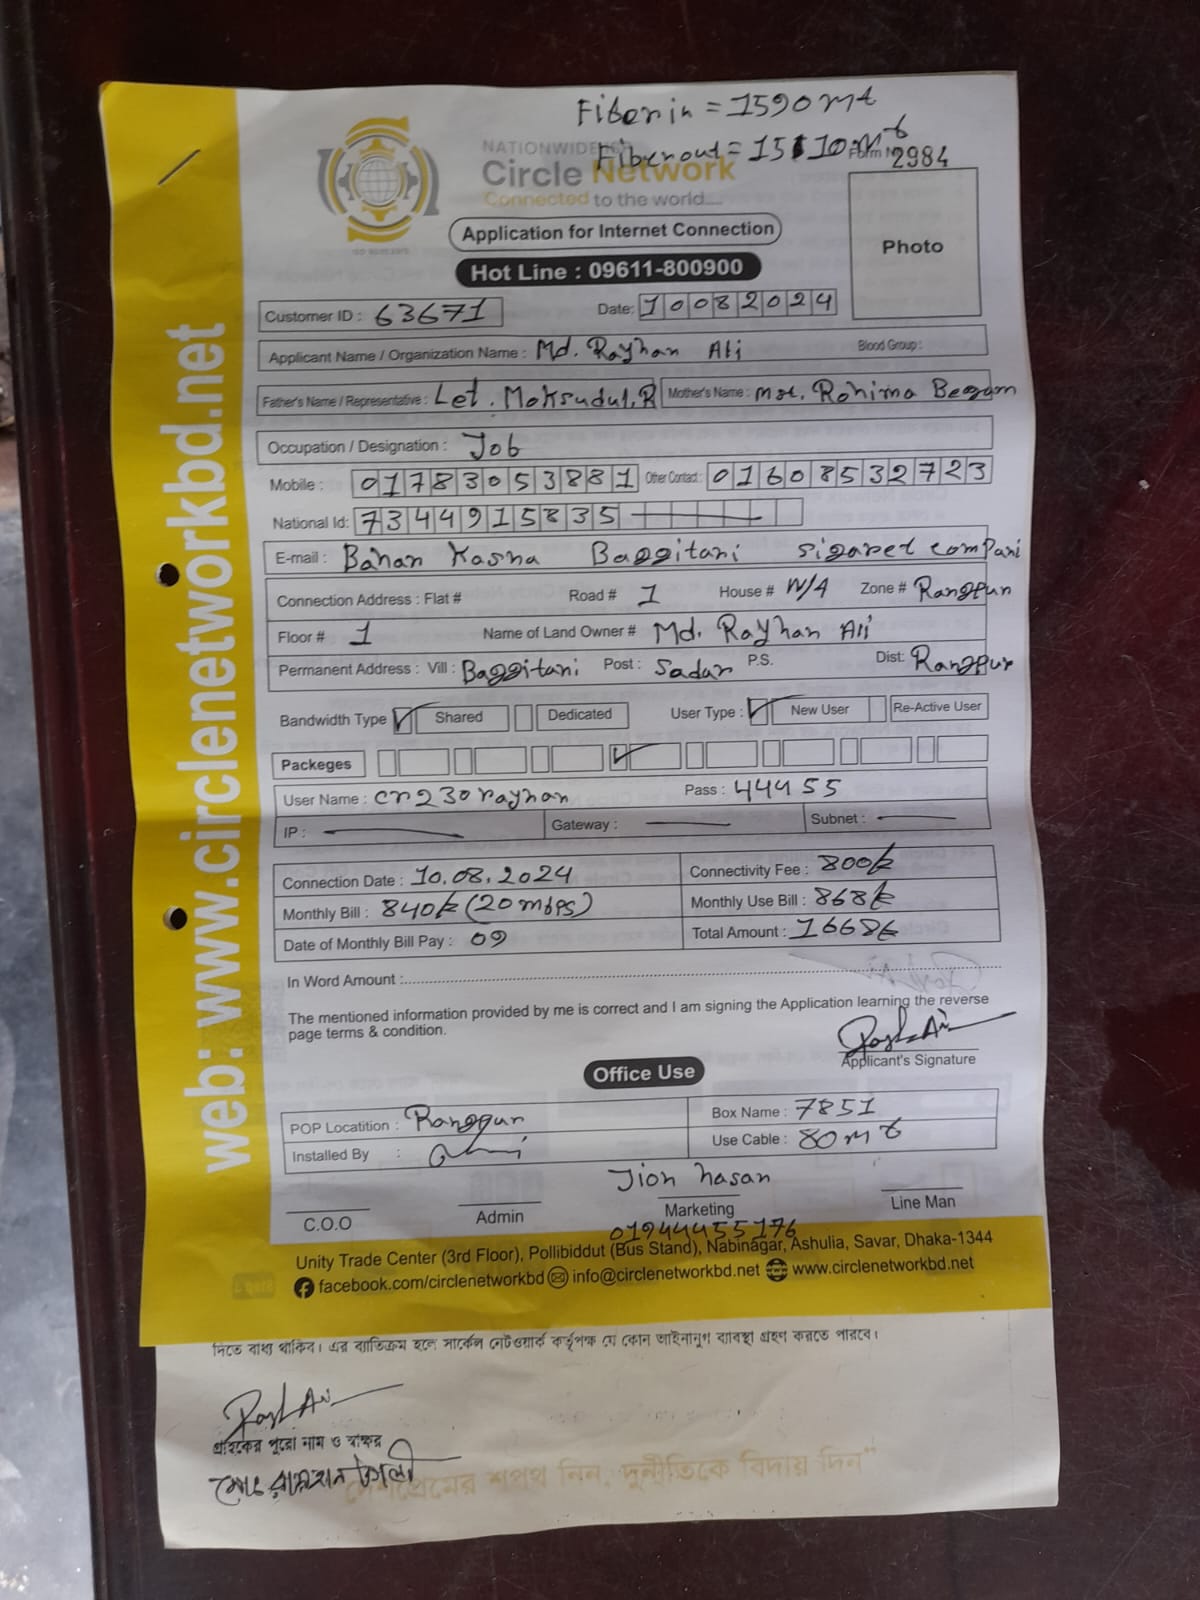 Fiber in = 1590 mt
Fiber out = 15110 mt
NATIONWIDE ISP
Form No 2984
Circle Network
Connected to the world....
Application for Internet Connection
Photo
Hot Line : 09611-800900
Customer ID : 63671 Date: 10082024
Applicant Name / Organization Name : Md. Rayhan Ali Blood Group :
Father's Name / Representative : Let. Moksudul, R Mother's Name : mst. Rohima Begam
Occupation / Designation : Job
Mobile : 01783053881 Other Contact : 01608532723
National Id: 7344915835
E-mail : Bahan Kasna Baggitani sigaret compani
Connection Address : Flat # Road # 1 House # N/A Zone # Rangpur
Floor # 1 Name of Land Owner # Md. Rayhan Ali
Permanent Address : Vill : Baggitani Post : Sadar P.S. Dist: Rangpur
Bandwidth Type ✓ Shared Dedicated User Type : ✓ New User Re-Active User
Packeges ✓
User Name : cn230rayhan Pass : 44455
IP : — Gateway : — Subnet : —
Connection Date : 10.08.2024 Connectivity Fee : 800/-
Monthly Bill : 840/- (20 mbps) Monthly Use Bill : 868/-
Date of Monthly Bill Pay : 09 Total Amount : 1668/-
In Word Amount :
The mentioned information provided by me is correct and I am signing the Application learning the reverse
page terms & condition.
Applicant's Signature
Office Use
POP Locatition : Rangpur Box Name : 7851
Installed By : Use Cable : 80 mt
Jion hasan
C.O.O Admin Marketing Line Man
01944455176
Unity Trade Center (3rd Floor), Pollibiddut (Bus Stand), Nabinagar, Ashulia, Savar, Dhaka-1344
facebook.com/circlenetworkbd info@circlenetworkbd.net www.circlenetworkbd.net
web: www.circlenetworkbd.net
দিতে বাধ্য থাকিব। এর ব্যাতিক্রম হলে সার্কেল নেটওয়ার্ক কর্তৃপক্ষ যে কোন আইনানুগ ব্যাবস্থা গ্রহণ করতে পারবে।
গ্রাহকের পুরো নাম ও স্বাক্ষর
মোঃ রায়হান আলী
দেশপ্রেমের শপথ নিন, দুর্নীতিকে বিদায় দিন"